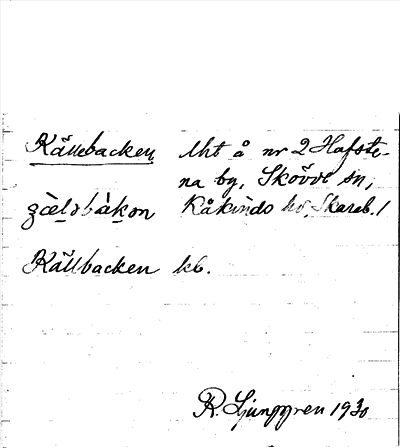 Källebacken lht å nr 2 Hafste-
na by, Skövde sn,
Kåkinds hd, Skarab. l
Källbacken kb.
R. Ljunggren 1930